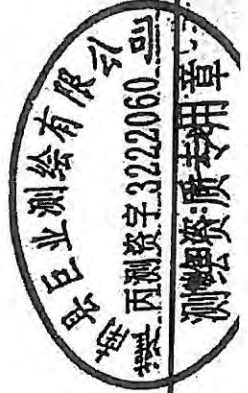 巨业测绘有限公司
丙测资字3222060
测绘资质专用章